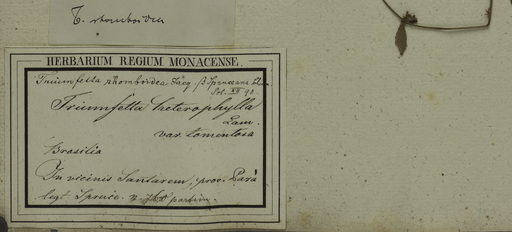 T. rhomboidea
HERBARIUM REGIUM MONACENSE.
Triumfetta rhomboidea Jacq. β
Triumfetta heterophylla
Lam.
var. tomentosa
Brasilia
In vicinis Santarem, prov. Pará
legt. Spruce. partim.